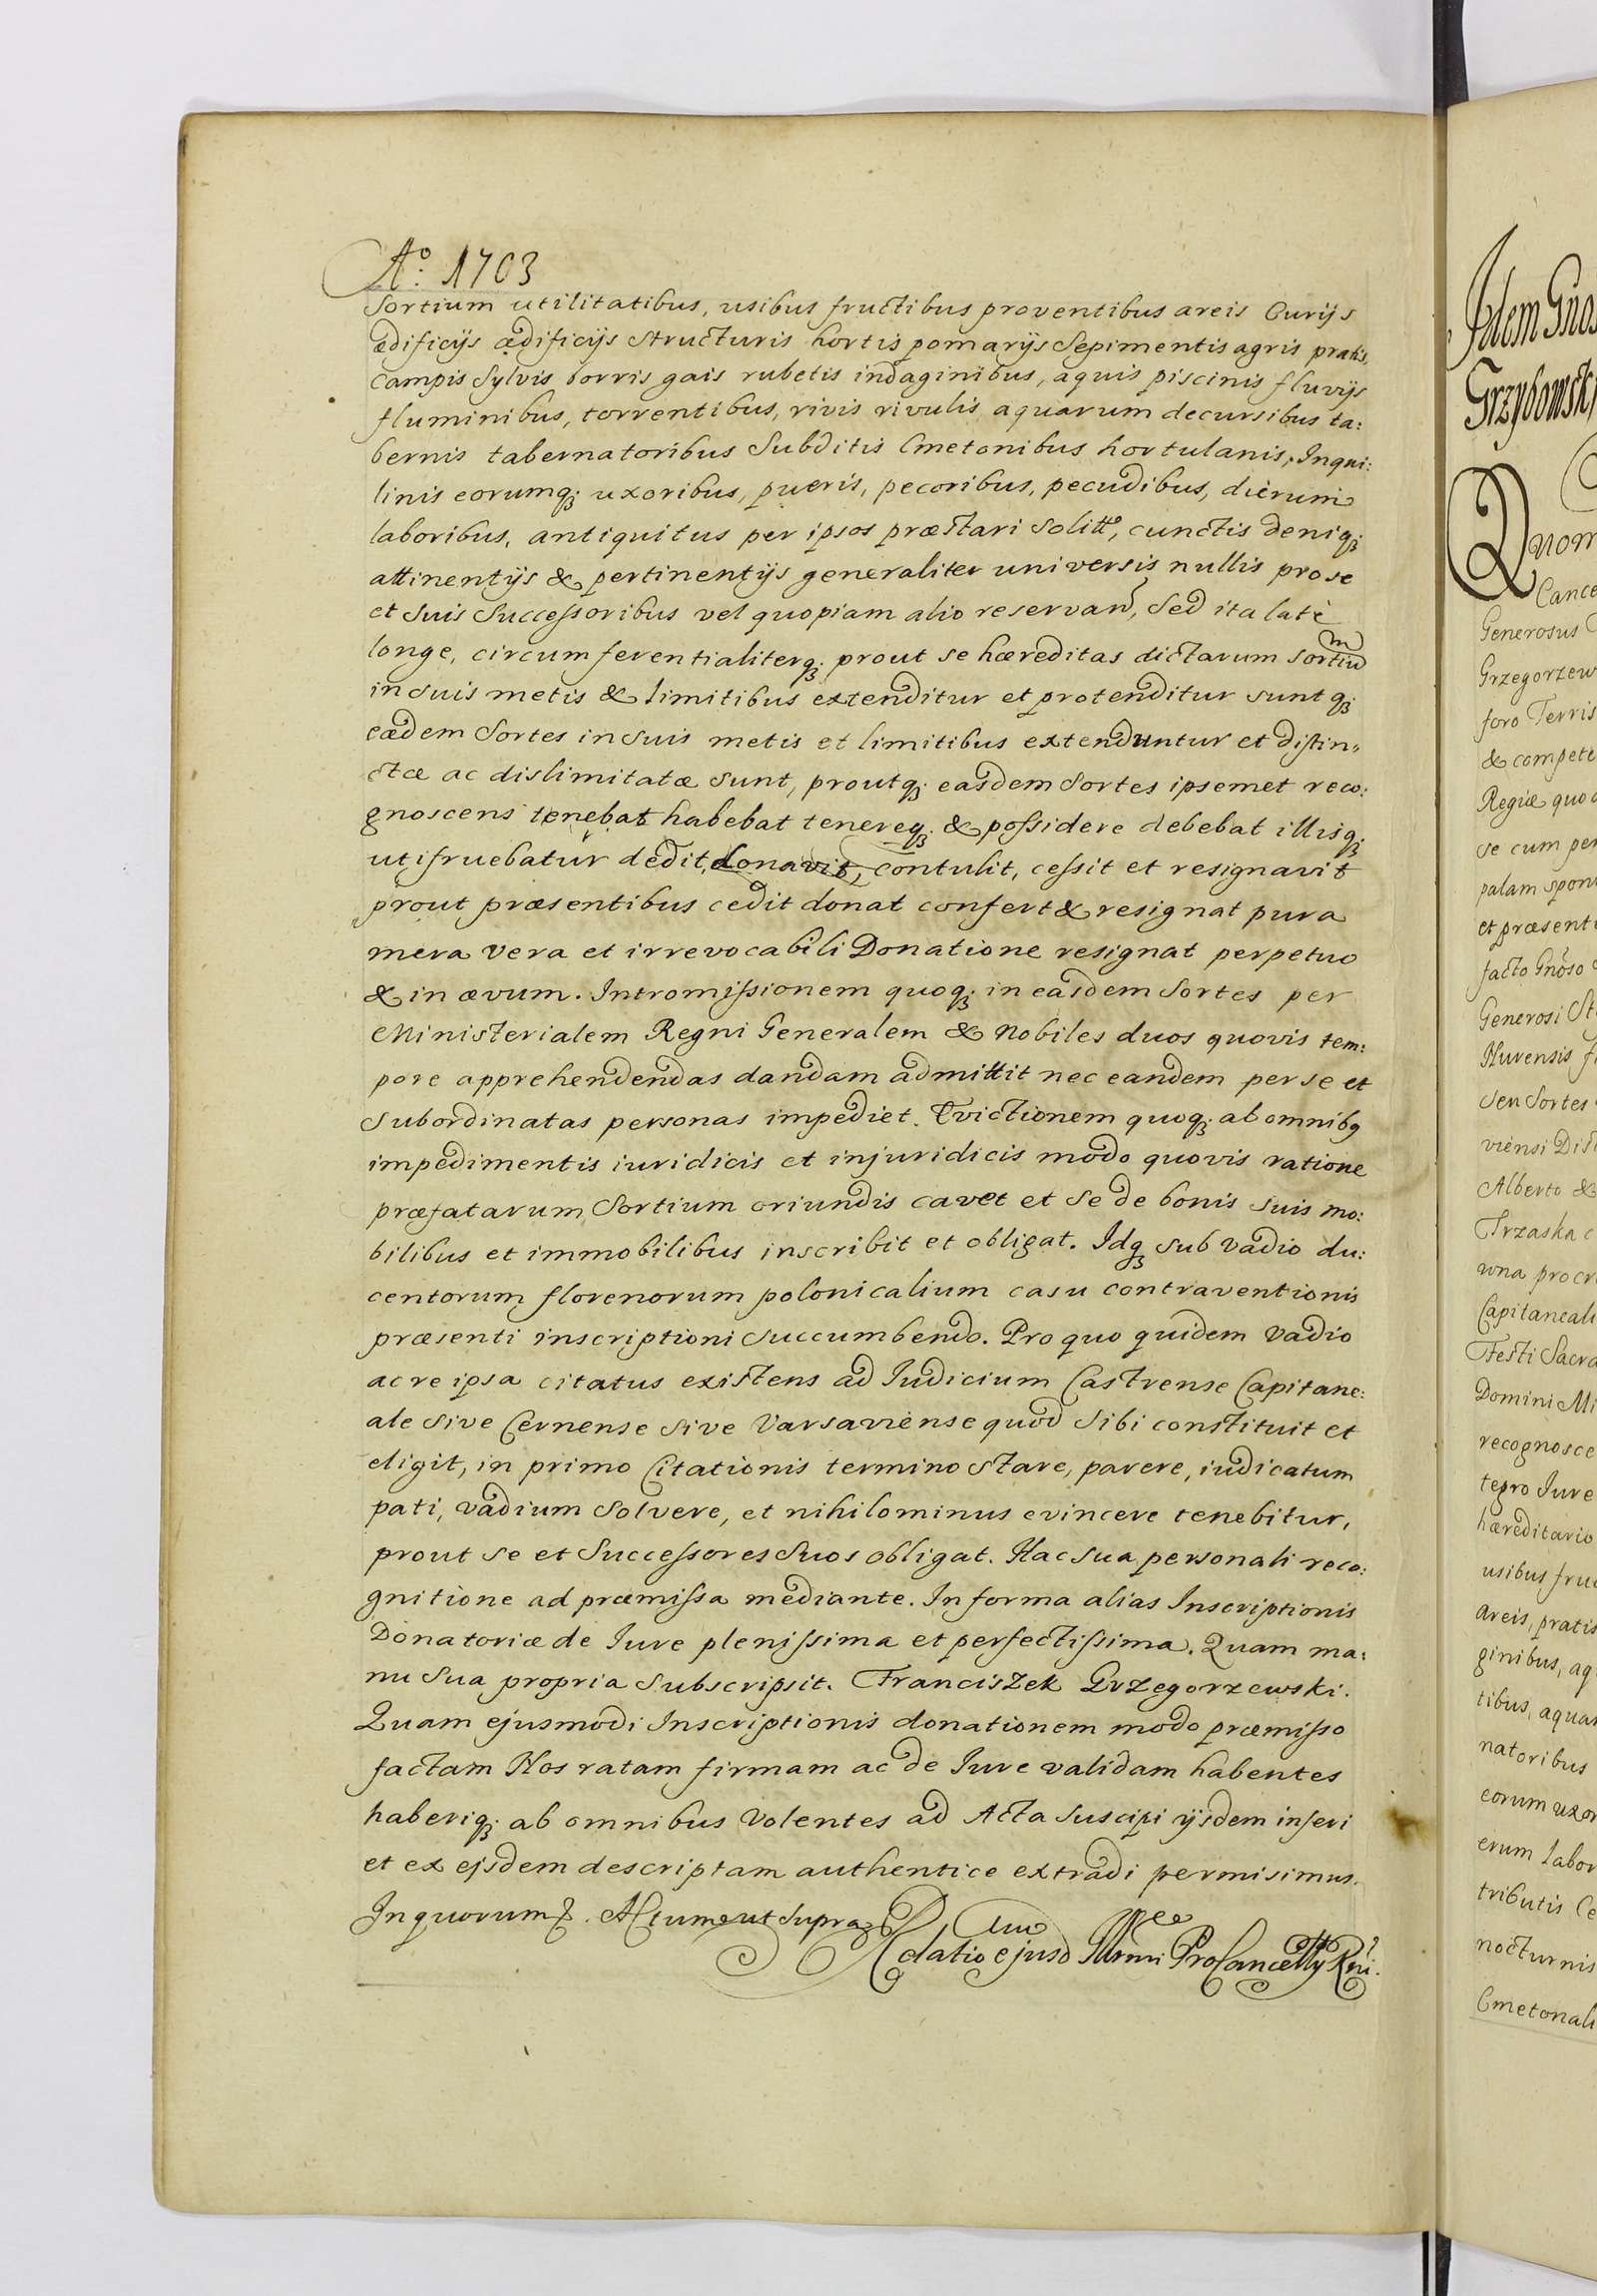 Aº: 1703
Sortium utilitatibus, usibus fructibus proventibus areis Curijs
ædificijs ædificijs structuris hortis pomarijs Sepimentis agris pratis,
Campis Sylvis borris gais rubetis indaginibus, aquis piscinis fluvijs
fluminibus, torrentibus, rivis rivulis aquarum decursibus ta:
bernis tabernatoribus Subditis Cmetonibus hortulanis, Inqui:
linis eorumq; uxoribus, pueris, pecoribus, pecudibus, dierum
laboribus, antiquitus per ipsos præstari solitt, cunctis deniq;
attinentijs & pertinentijs generaliter universis nullis pro se
et suis Successoribus vel quopiam alio reservand, Sed ita latè
longe, circumferentialiterq; prout se hæreditas dictarum sortium
in suis metis & limitibus extenditur et protenditur suntq;
eædem Sortes in suis metis et limitibus extenduntur et distin„
ctæ ac dislimitatæ sunt, proutq; easdem Sortes ipsemet reco:
gnoscens tenebat habebat tenereq; & possidere debebat illisq;
utifruebatur dedit, donavit, contulit, cessit et resignavit
prout præsentibus cedit donat confert & resignat pura
mera vera et irrevocabili Donatione resignat perpetuo
& in ævum. Intromissionem quoq; in easdem Sortes per
Ministerialem Regni Generalem & Nobiles duos quovis tem:
pore apprehendendas dandam admittit nec eandem per se et
Subordinatas personas impediet. Evictionem quoq; ab omnibq
impedimentis iuridicis et injuridicis modo quovis ratione
præfatarum Sortium oriundis cavet et Se de bonis suis mo:
bilibus et immobilibus inscribit et obligat. Idq; sub vadio du:
centorum florenorum polonicalium casu contraventionis
præsenti inscriptioni succumbendo. Pro quo quidem vadio
ac re ipsa citatus existens ad Iudicium Castrense Capitane:
ale sive Cernense sive Varsaviense quod sibi constituit et
eligit, in primo Citationis termino stare, parere, iudicatum
pati, vadium solvere, et nihilominus evincere tenebitur,
prout se et Successores Suos obligat. Hac sua personali reco:
gnitione ad præmissa mediante. In forma alias Inscriptionis
Donatoriæ de Iure plenissima et perfectissima. Quam ma:
nu Sua propria subscripsit. Franciszek Grzegorzewski.
Quam ejusmodi Inscriptionis donationem modo præmisso
factam Nos ratam firmam ac de Iure validam habentes
haberiq; ab omnibus Volentes ad Acta suscipi ijsdem inseri
et ex ejsdem descriptam authentice extradi permisimus.
In quorum &. Actum ut supra
datio ejusd Illrmi ProCancellÿ Rni.
Idem Gnos
Grzybowski
Quom
Cance
Generosus
Grzegorzew
foro Terris
& compete
Regiæ quoa
se cum per
palam spont
et præsent
facto Gnoso
Generosi St
Nurensis f
seu Sortes
viensi Dist
Alberto &
Trzaska c
una procr
Capitaneali
Festi Sacra
Domini Mi
recognosce
tegro Iure
hæreditario
usibus fruc
areis, pratis
ginibus, aq
tibus, aquar
natoribus
eorum uxor
erum labor
tributis Ce
nocturnis
Cmetonali